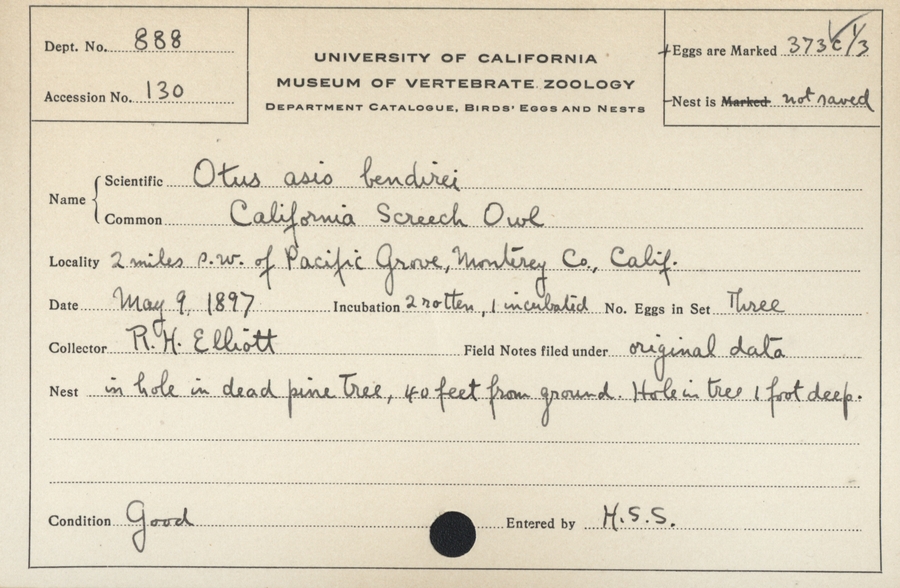 Dept. No. 888
Accession No. 130
UNIVERSITY OF CALIFORNIA
MUSEUM OF VERTEBRATE ZOOLOGY
DEPARTMENT CATALOGUE, BIRDS' EGGS AND NESTS
Eggs are Marked 373c 1/3
Nest is Marked not saved
Name
Scientific Otus asio bendirei
Common California Screech Owl
Locality 2 miles s.w. of Pacific Grove, Monterey Co., Calif.
Date May 9, 1897 Incubation 2 rotten, 1 incubated No. Eggs in Set Three
Collector R.H. Elliott Field Notes filed under original data
Nest in hole in dead pine tree, 40 feet from ground. Hole in tree 1 foot deep.
Condition Good Entered by H.S.S.